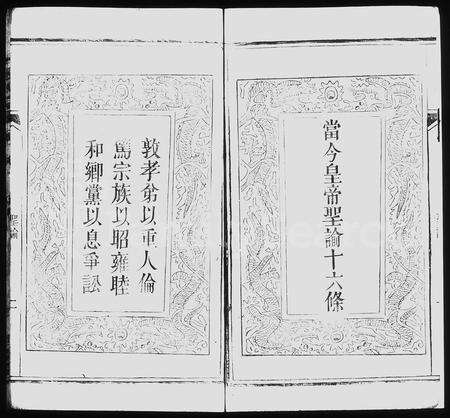 當今皇帝聖諭十六條
敦孝弟以重人倫
篤宗族以昭雍睦
和鄉黨以息爭訟